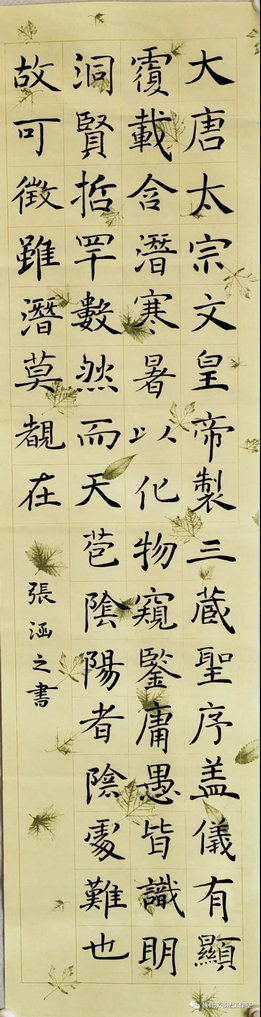 大唐太宗文皇帝製三藏聖序盖儀有顯
覆載含潛寒暑以化物窺鑒庸愚皆識明
洞賢哲罕數然而天苞陰陽者陰處難也
故可徵雖潛莫覩在
張涵之書